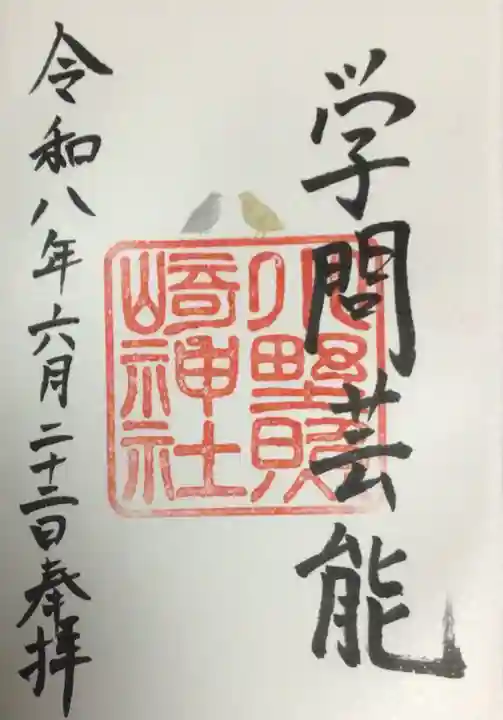 学問芸能
小野照
崎神社
令和八年六月二十二日奉拝